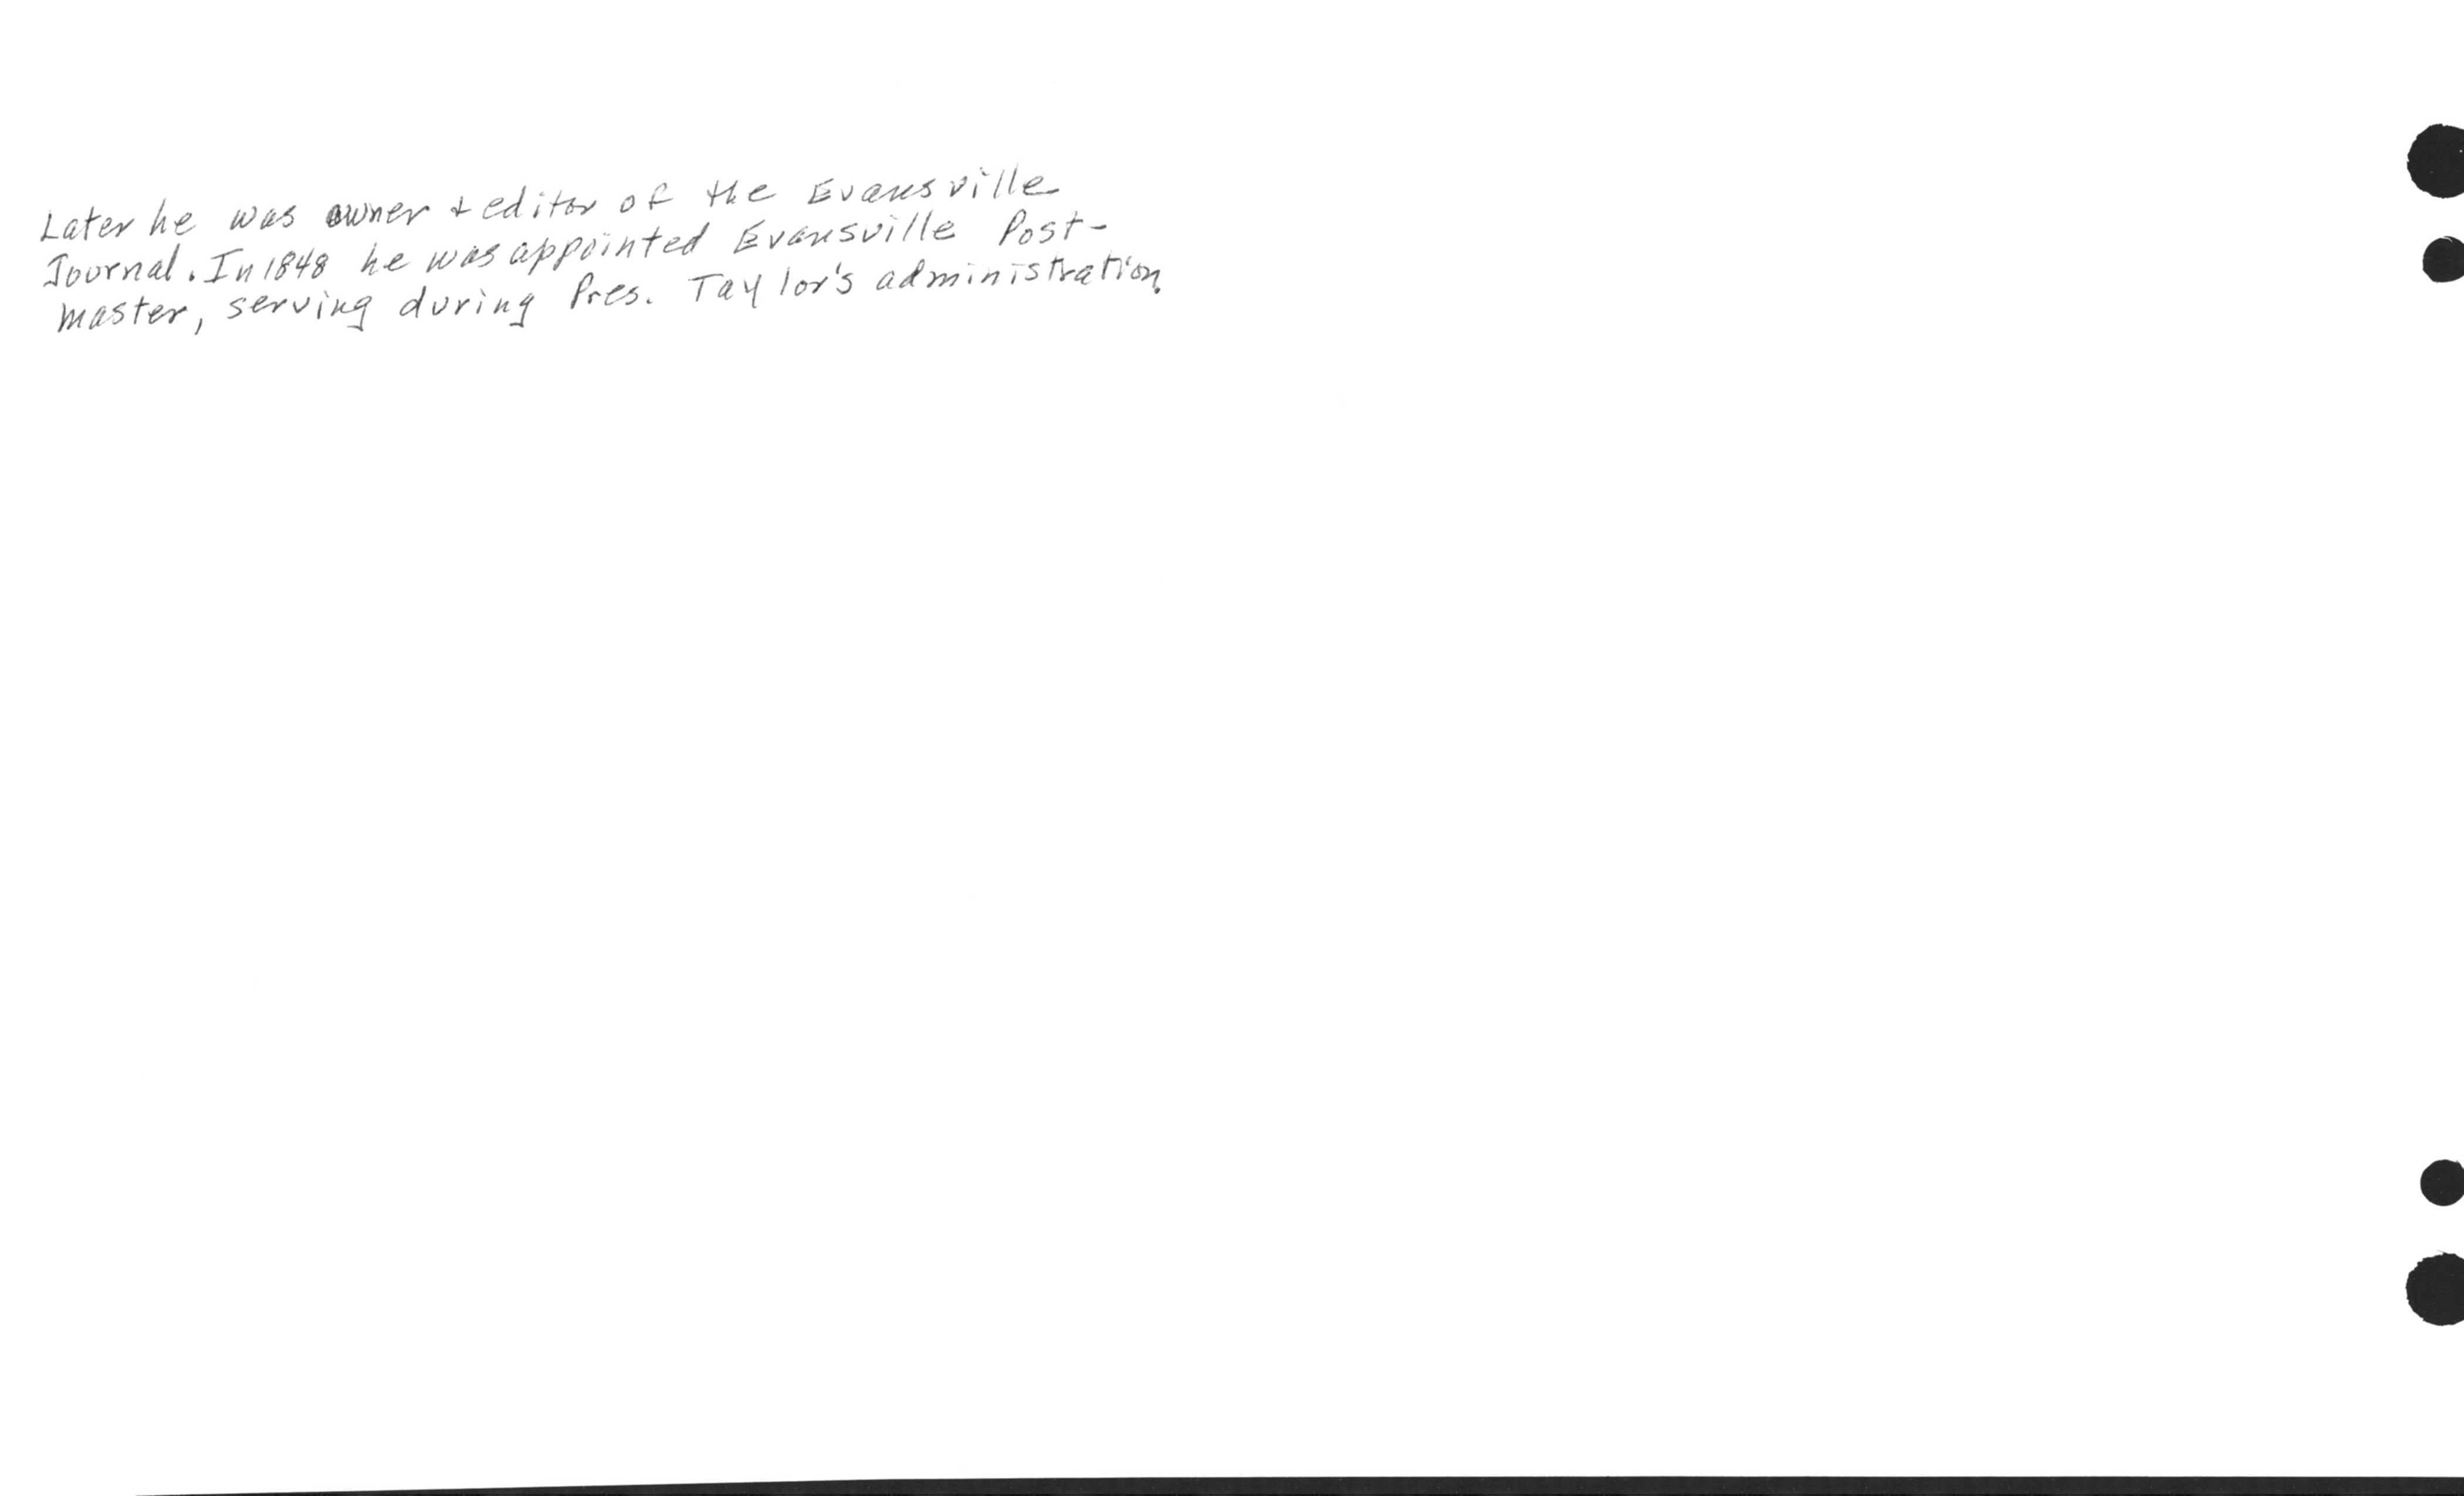 Later he was owner + editor of the Evansville
Journal. In 1848 he was appointed Evansville Post-
master, serving during Pres. Taylor's administration.